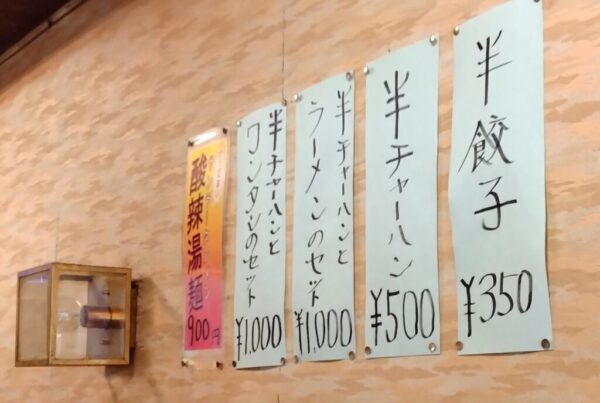 半餃子
¥350
半チャーハン
¥500
半チャーハンと
ラーメンのセット
¥1,000
半チャーハンと
ワンタンのセット
¥1,000
酸辣湯麺
900円